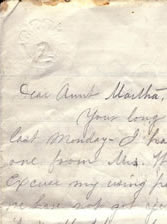 Dear Aunt Martha,
Your long
last Monday - I ha
one from Mrs. W
Excuse my using p